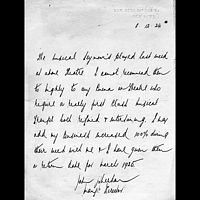 8. 12. 24
The Musical Seymours played last week
at above Theatre I cannot recommend them
to highly to any Cinema or Theatre who
require a really first class Musical
Speciality both refined & entertaining. I may
add my business increased 100% during
their week with me & I have given them
a return date for March 1925
John
Manag' Director